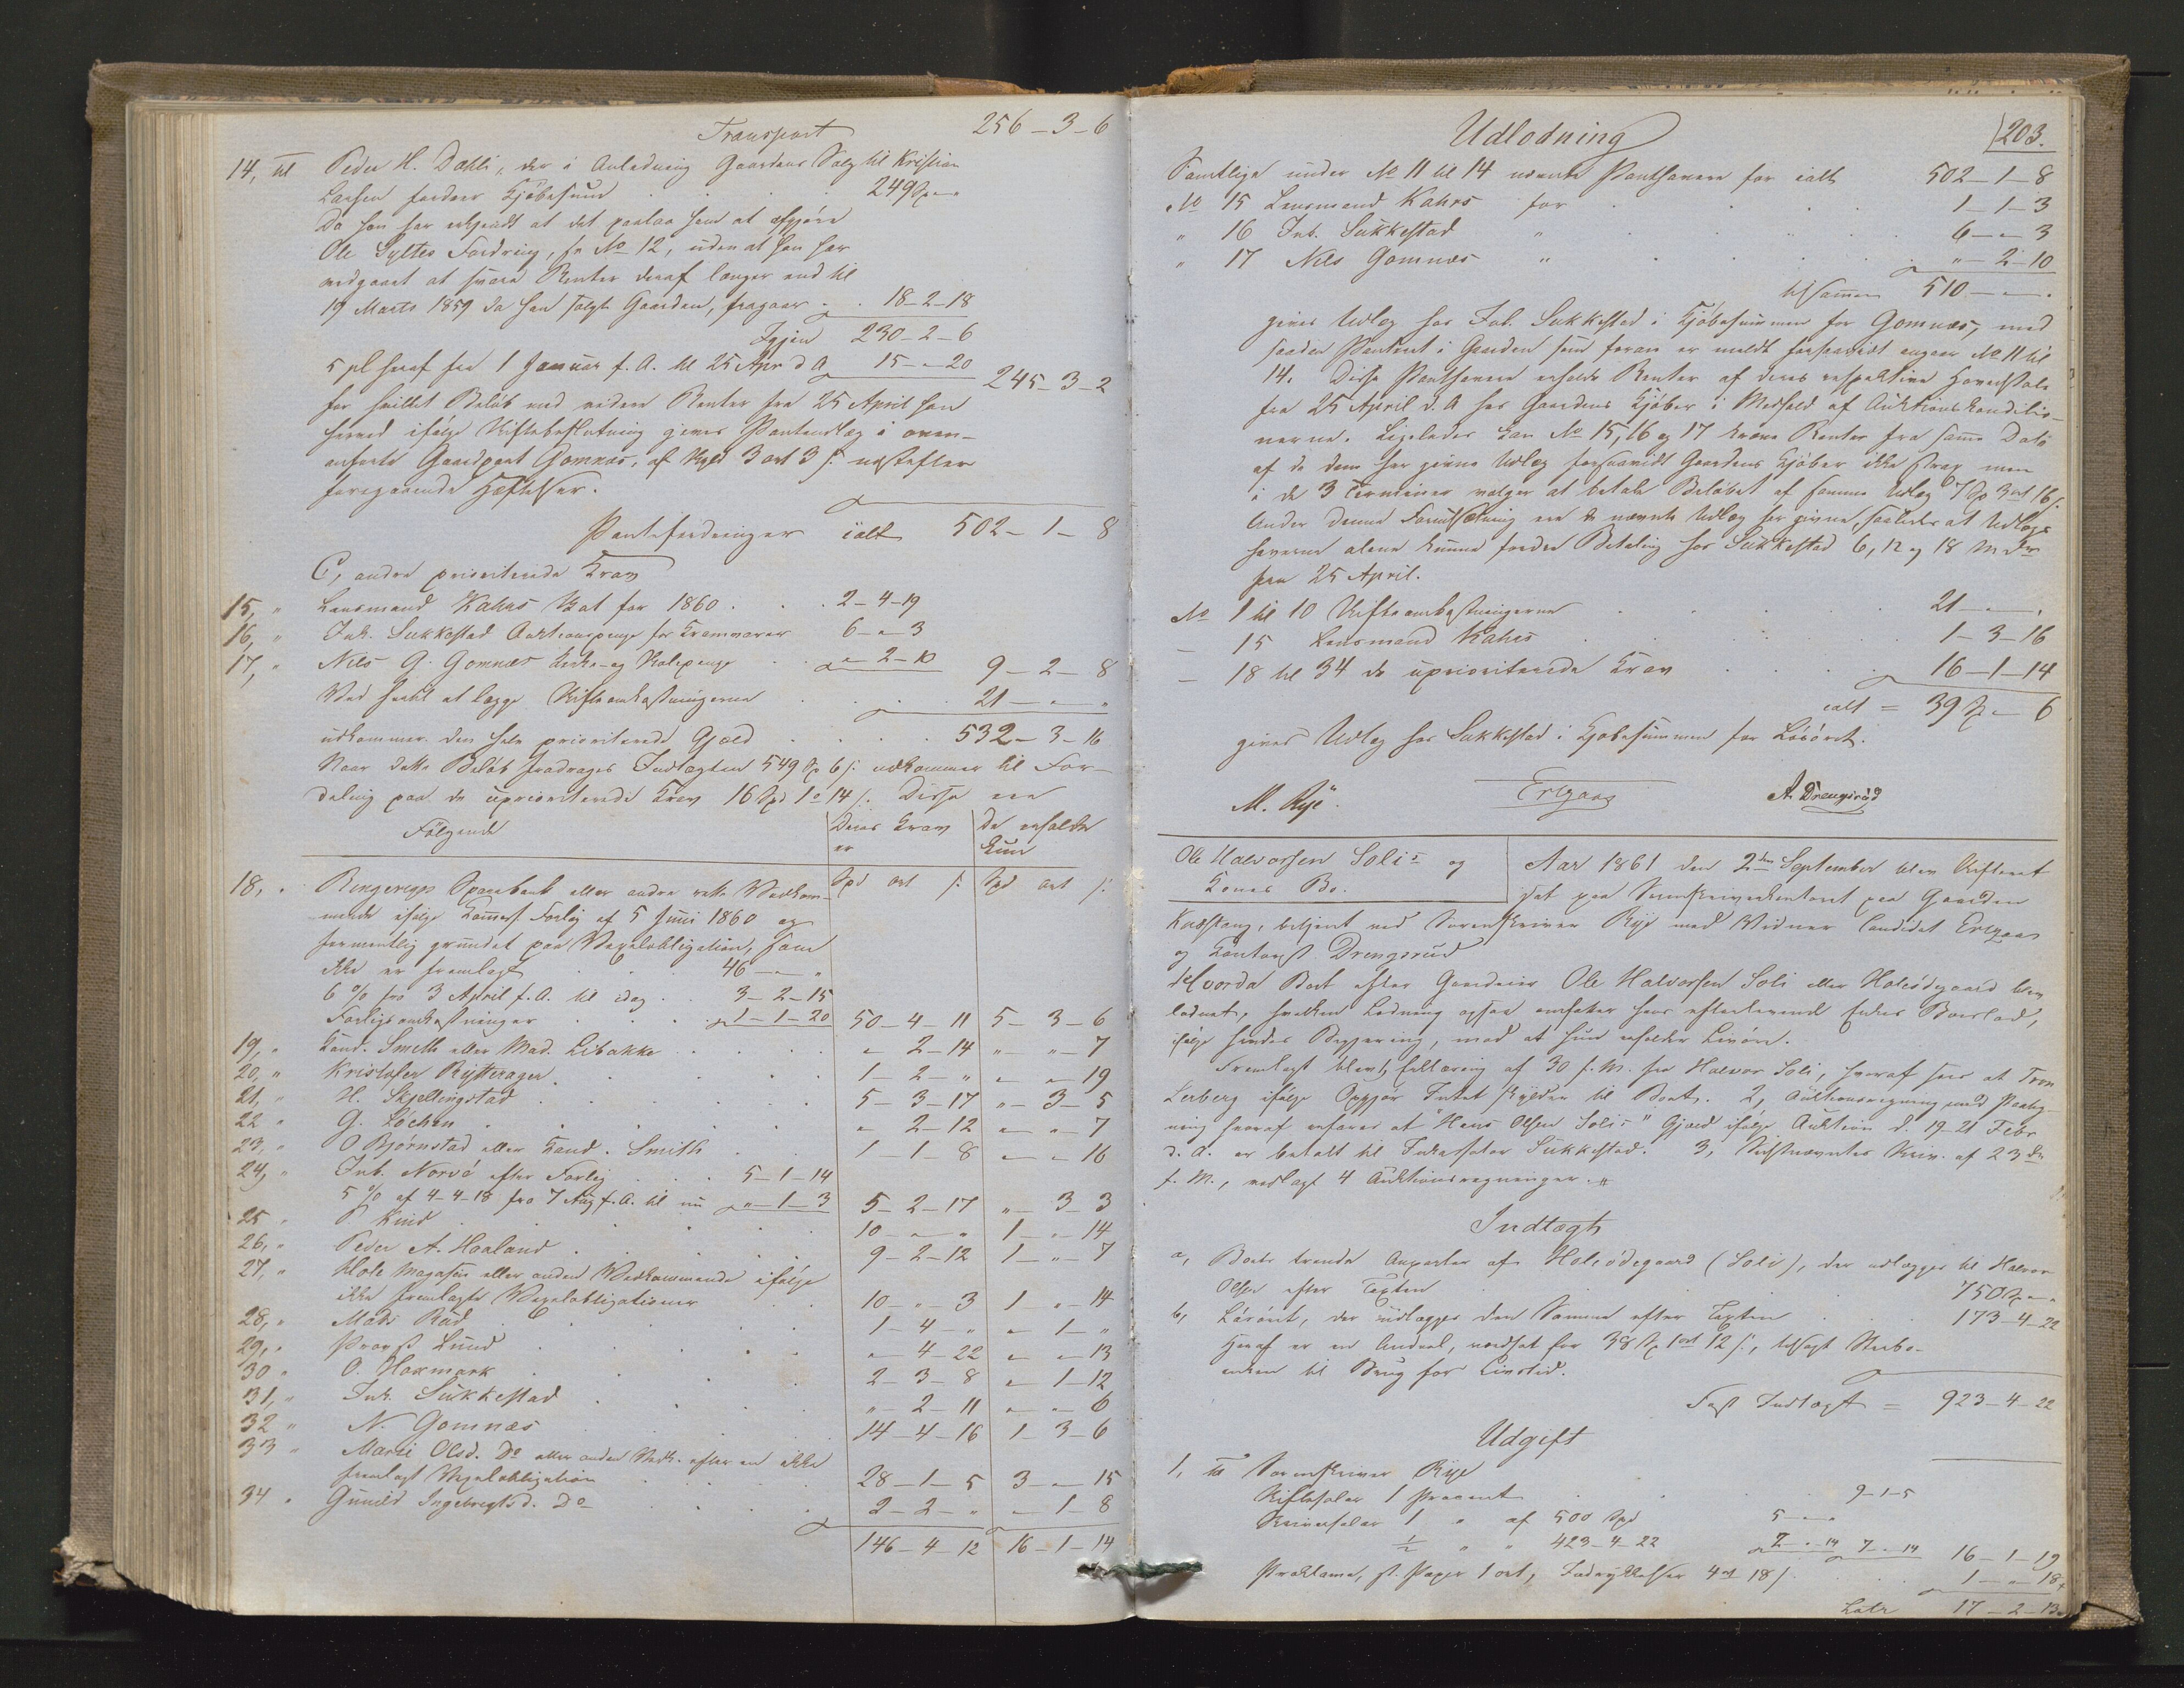 Transport 256-3-6
14, til Peder H. Dahli, der i Anledning Gaardens Salg til Kristian
Larsen fordrer Kjøbesum . . . 249 Sp - "
Da han har erkjendt at det paalaa ham at afgjøre
Ole Syltes Fordring, sr No 12, uden at han har
vedgaaet at svare Renter deraf længer end til
19 Marts 1859 da han solgte Gaarden, fragaar . . 18-2-18
Igjen 230-2-6
5 pC heraf fra 1 Januar f. A. til 25 Apr d A 15-"-20 245-3-2
for hvilket Beløb med videre Renter fra 25 April han
herved ifølge Skiftebeslutning gives Panteudlæg i oven-
anførte Gaardpart Gomnæs, af Skyld 3 ort 3 s. næstefter
foregaaende Hæftelser.
Pantefordringer ialt 502-1-8
C, andre prioriterede Krav
15, " Lensmand Kahrs Skat for 1860 . . . 2-4-19
16, " Ink. Sukkestad Auktionspenge for Kramvarer 6-"-3
17, " Nils G. Gomnæs Kirke- og Skolepenge . . "-2-10 9-2-8
Ved hertil at lægge Skifteomkostningerne . . . 21-"-"
udkommer den hele prioriterede Gjæld . . . . 532-3-16
Naar dette Beløb fradrages Indtægten 549 Sp 6 s. udkommer til For-
deling paa de uprioriterede Krav 16 Spd 1 o 14 s. Disse ere
Følgende Deres Krav De erholde
er kun
18, " Ringeriges Sparebank eller andre rette Vedkom- Spd ort s. Spd ort s.
mende ifølge Kommss. Forlig af 5 Juni 1860 og
formentlig grundet paa Vexelobligation, som
ikke er fremlagt . . . 46-"-"
6 % fra 3 April f. A. til idag . . 3-2-15
Forligsomkostninger . . . . 1-1-20 50-4-11 5-3-6
19, " Kand. Smith eller Mad. Libakke . . . . "-2-14 "-"-7
20, " Kristofer Rytterager . . . . 1-2-" "-"-19
21, " H. Skjellingstad . . . . . 5-3-17 "-3-5
22 " G. Løchen . . . . . . "-2-12 "-"-7
23, " O Bjørnstad eller Kand. Smith . . 1-1-8 "-"-16
24, " Ink. Norvé efter Forlig . . . 5-1-14
5 % af 4-4-18 fra 7 Aug f. A. til nu "-1-3 5-2-17 "-3-3
25 " P. Kind . . . . . 10-"-" 1-"-14
26, " Peder A. Haaland . . . . . 9-2-12 1-"-7
27, " Hole Magasin eller anden Vedkommende ifølge
ikke fremlagte Vexelobligationer . . 10-"-3 1-"-14
28, " Mads Rud . . . . . 1-4-" "-1-"
29, " Provst Lund . . . . . "-4-22 "-"-13
30 " O. Haxmark . . . . . 2-3-8 "-1-12
31, " Ink. Sukkestad . . . . . "-2-11 "-"-6
32 " N. Gomnæs . . . . . 14-4-16 1-3-6
33 " Marie Olsd. Do eller anden Vedk. efter en ikke
fremlagt Vexelobligation . . . . 28-1-5 3-"-15
34 " Gunild Ingebregtsd. Do . . . . 2-2-" "-1-8
146-4-12 16-1-14
Udlodning 203.
Samtlige under No 11 til 14 nævnte Panthavere for ialt 502-1-8
No 15 Lensmand Kahrs for . . . . 1-1-3
" 16 Ink. Sukkestad " . . . . 6-"-3
" 17 Nils Gomnæs " . . . . "-2-10
tilsammen 510-"-"
gives Udlæg hos Ink. Sukkestad i Kjøbesummen for Gomnæs, med
saadan Panteret i Gaarden som foran er meldt forsaavidt angaar No 11 til
14. Disse Panthavere erholde Renter af deres respektive Hovedstole
fra 25 April d. A hos Gaardens Kjøber i Medhold af Auktionskonditio-
nerne. Ligeledes kan No 15, 16 og 17 kræve Renter fra samme Dato
af de dem her givne Udlæg forsaavidt Gaardens Kjøber ikke strax men
i de 3 Terminer vælger at betale Beløbet af samme Udlæg 7 Sp 3 ort 16 s.
Under denne Forudsætning ere de nævnte Udlæg her givne, saaledes at Udlægs
haverne alene kunne fordre Betaling hos Sukkestad 6, 12 og 18 Mdr
fra 25 April.
No 1 til 10 Skifteomkostningerne . . . . 21-"-"
- 15 Lensmand Kahrs . . . . 1-3-16
- 18 til 34 de uprioriterede Krav . . . 16-1-14
ialt = 39 Sp-"-6
gives Udlæg hos Sukkestad i Kjøbesummen for Løsøret.
M. Rye. Ercgaas A. Drengsrud
Ole Halvorsen Solis og
Kones Bo.
Aar 1861 den 2den September blev Skifteret
sat paa Sorenskriverkontoret paa Gaarden
Kadstang, betjent ved Sorenskriver Rye med Vidner Candidat Ercgaas
og Kontorist Drengsrud
Hvorda Boet efter Gaardeier Ole Halvorsen Soli eller Holeødegaard blev
lodnet, hvilken Lodning ogsaa omfatter hans efterlevende Enkes Boeslod,
ifølge hendes Begjæring, mod at hun erholder Livøre.
Fremlagt blev 1, Erklæring af 30 f. M. fra Halvor Soli, hvoraf sees at Tron
Lerberg ifølge Opgjør Intet skylder til Boet. 2, Auktionsregning med Paateg-
ning hvoraf erfares at "Hans Olsen Solis" Gjæld ifølge Auktion d. 19-21 Febr
d. A. er betalt til Inkassator Sukkestad. 3, Sidstnævntes Skriv. af 23de
f. M., vedlagt 4 Auktionsregninger. "
Indtægt
a, Boets trende Anparter af Holeødegaard (Soli), der udlægges til Halvor
Olsen efter Taxten . . . . 750 Sp-"-"
b, Løsøret, der udlægges den Samme efter Taxten . . 173-4-22
Heraf er en Andeel, værdsat for 38 Sp 1 ort 12 s., tillagt Stervbo-
enken til Brug for Livstid.
Hele Indtægt = 923-4-22
Udgift
1, til Sorenskriver Rye
Skiftesalær 1 Procent . . . . 9-1-5
Skriversalær 1 " af 500 Spd 5-"-"
1/2 " " 423-4-22 2-"-14 7-"-14 16-1-19
Proklama, st. Papir 1 ort, Indrykkelser 4 ort 18 s. . . 1-"-18
Latr 17-2-13